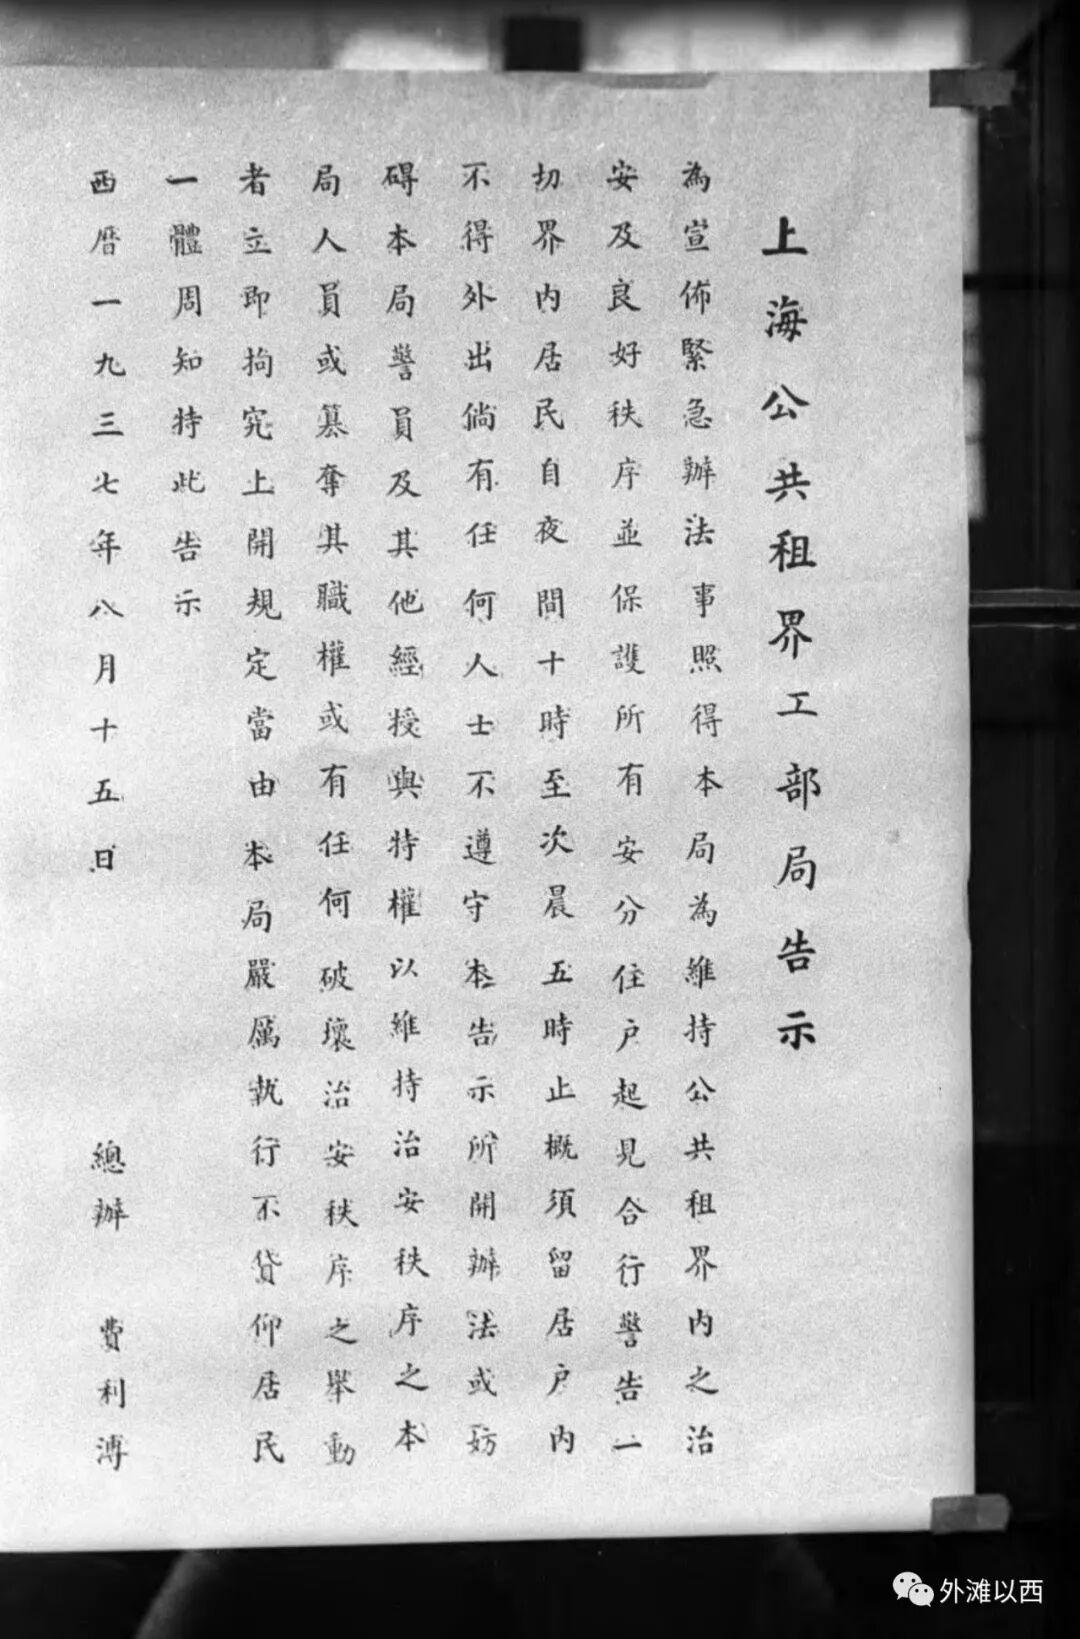 上海公共租界工部局告示
為宣佈緊急辦法事照得本局為維持公共租界內之治
安及良好秩序並保護所有安分住户起見合行警告一
切界内居民自夜間十時至次晨五時止概須留居户内
不得外出倘有任何人士不遵守本告示所開辦法或妨
碍本局警員及其他經授與特權以維持治安秩序之本
局人員或簒奪其職權或有任何破壞治安秩序之舉動
者立即拘究上開規定當由本局嚴厲執行不貸仰居民
一體周知特此告示
西曆一九三七年八月十五日 總辦 費利溥
外滩以西